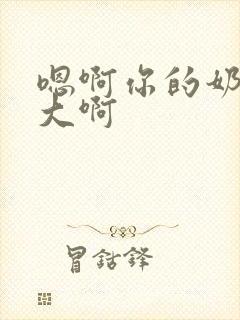 嗯啊你的奶
大啊
冒鈷鋒